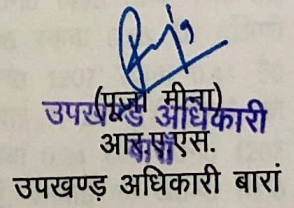 (पूजा मीना)
उपखण्ड अधिकारी
आर.ए.एस.
बारां
उपखण्ड़ अधिकारी बारां